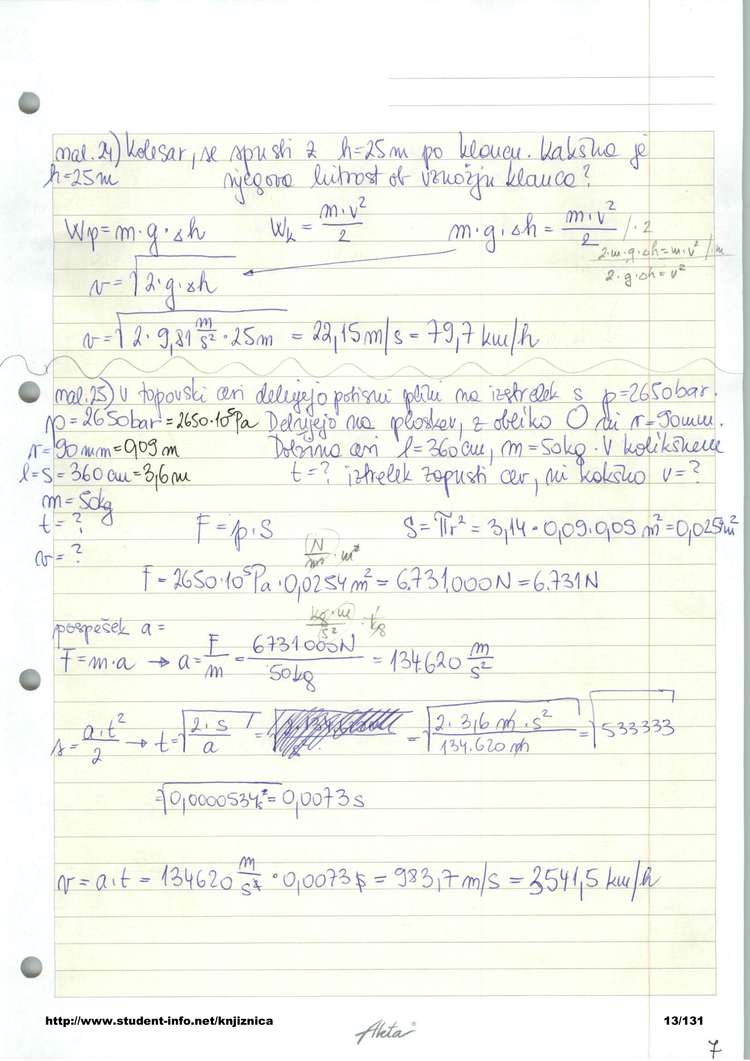 nal. 24) Kolesar, se spusti z h=25m po klancu. Kakšna je
h=25m njegova hitrost ob vznožju klanca?
Wp=m·g·Δh Wk = m·v²/2 m·g·Δh = m·v²/2 /·2
2·m·g·Δh=m·v² /:m
2·g·Δh=v²
v=√2·g·Δh
v=√2·9,81 m/s²·25m = 22,15m/s = 79,7 km/h
nal. 25) V topovski cevi delujejo potisni plini na izstrelek s p=2650bar.
p=2650bar=2650·10⁵Pa Delujejo na ploskev, z obliko O in r=90mm.
r=90mm=0,09m Dolžina cevi l=360cm, m=50kg. V kolikšnem
l=s=360cm=3,6m t=? iztrelek zapusti cev, in kakšno v=?
m=50kg
t=? F=p·S S=πr²=3,14·0,09·0,09 m²=0,0254m²
v=?
N/m²·m²
F=2650·10⁵Pa·0,0254m²=6.731.000N=6.731N
pospešek a= kg·m/s²·1/kg
F=m·a → a=F/m=6731000N/50kg=134620 m/s²
s=a·t²/2 → t=√2·s/a = =√2·3,6 m·s²/134.620m=√533333
=√0,0000534s²=0,0073s
v=a·t=134620 m/s²·0,0073s=983,7m/s=3541,5km/h
http://www.student-info.net/knjiznica
Akta
13/131
7